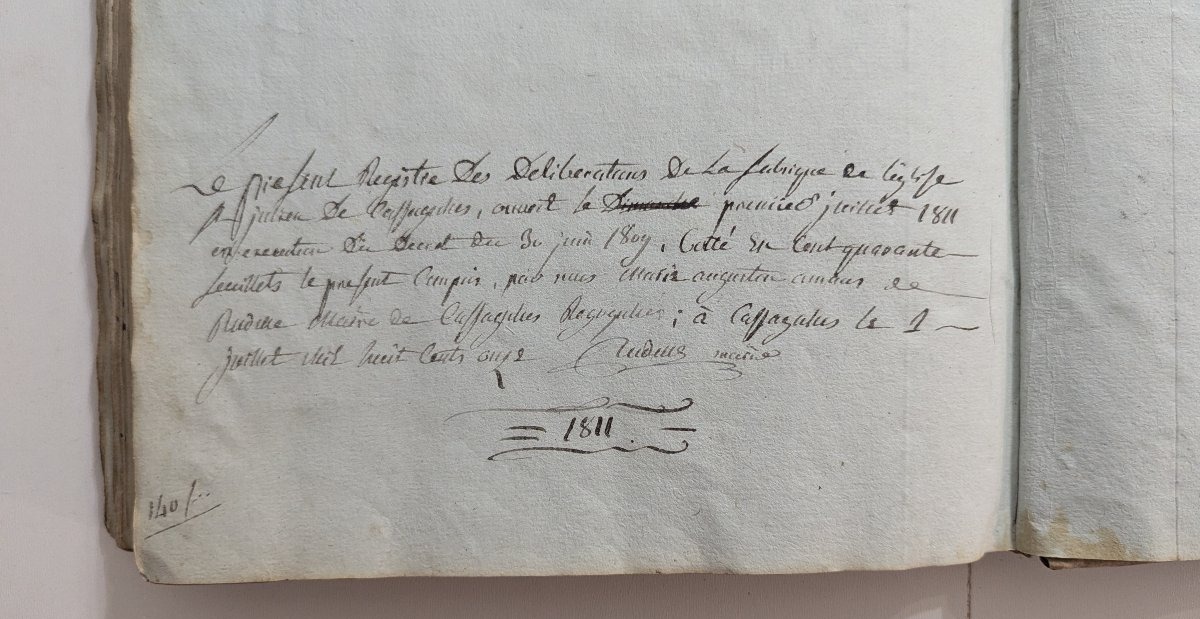 Le present Registre Des Deliberations De La fabrique de l'eglise
St julien De Cassagnoles, ouvert le Dimanche premier juillet 1811
en execution Du Decret du 30 10bre 1809, Cotté En Cent quarante
feuillets le present Compris, par nous Marie augustin de
maire de Cassagnoles ; à Cassagnoles le 1
juillet mil huit Cents onze maire
1811
140 f